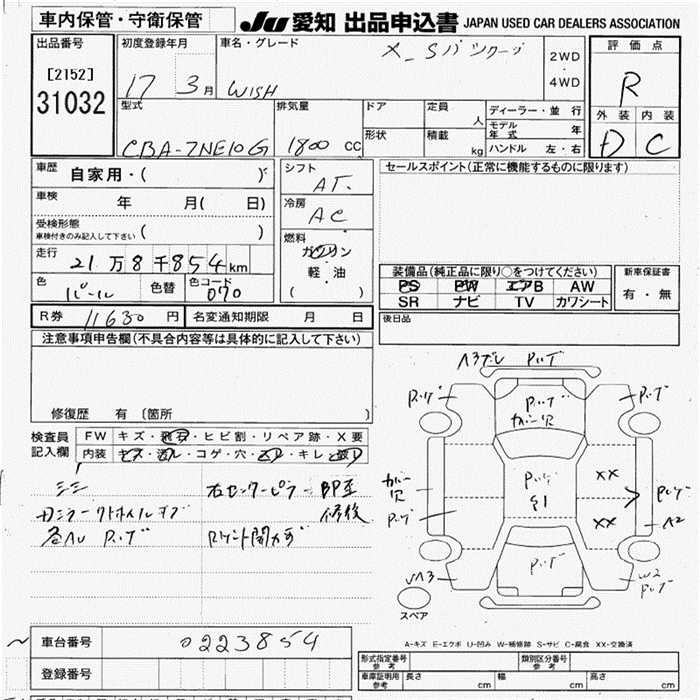 車内保管・守衛保管 JU 愛知 出品申込書 JAPAN USED CAR DEALERS ASSOCIATION
出品番号
[2152]
31032
初度登録年月
17 3月
車名・グレード
X_Sパッケージ
WISH
2WD
・
4WD
評価点
R
外装 内装
D C
型式
CBA-ZNE10G
排気量
1800 CC
ドア
形状
定員 人
積載 kg
ディーラー・並行
モデル年式 年
ハンドル 左・右
車歴
自家用・( )
車検
年 月( 日)
受検形態
車検付きのみ記入して下さい ( )
走行
21万8千854km
色
パール
色替
色コード
070
シフト
AT.
冷房
AC
燃料
ガソリン
軽・油
( )
セールスポイント(正常に機能するものに限ります)
装備品(純正品に限り○をつけてください)
PS PW エアB AW
SR ナビ TV カワシート
新車保証書
有・無
R券 11630円
名変通知期限 月 日
後日品
注意事項申告欄(不具合内容等は具体的に記入して下さい)
修復歴 有 [箇所 ]
検査員
記入欄
FW キズ・飛石・ヒビ割・リペア跡・X要
内装 キズ・汚レ・コゲ・穴・スレ・キレ・破レ
シミ 右センターピラー部歪
修復
各AU Pいげ
A3ズレ Pいげ
Pいげ
Pいげ
Pいげ
カバー穴
Pいげ
S1
XX
XX
カバー穴
Pいげ
Pいげ
A2
Pいげ
A3
W2
Pいげ
スペア
A-キズ E-エクボ U-凹み W-補修跡 S-サビ C-腐食 XX-交換済
車台番号 0223854
登録番号
形式指定番号
参考
類別区分番号
参考
車庫証明用
参考
長さ cm 幅 cm 高さ cm